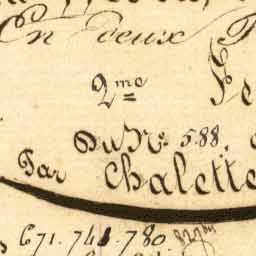 En deux
2me Fe
Du No. 588.
Par Chalette
671. 741. 780.